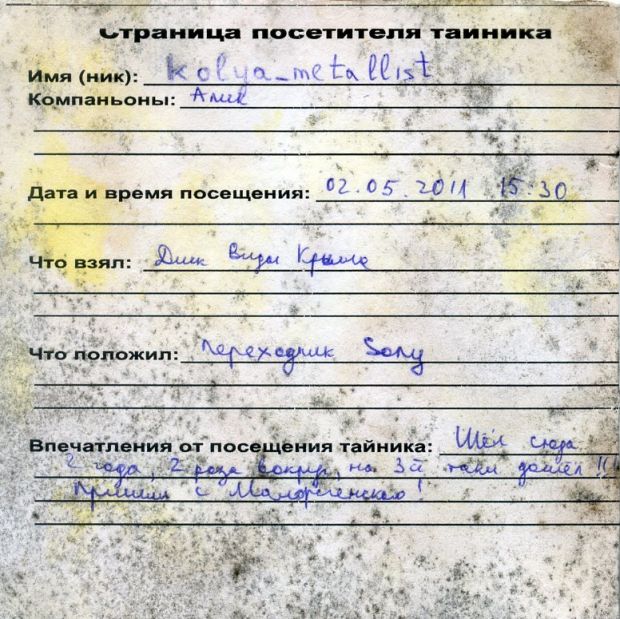 Страница посетителя тайника
Имя (ник): kolya_metallist
Компаньоны: Алик
Дата и время посещения: 02.05.2011 15:30
Что взял: Диск Виды Крыма
Что положил: Переходник Sony
Впечатления от посещения тайника: Шёл сюда
2 года, 2 раза вокруг, на 3й таки дошёл!!!
Пришли с